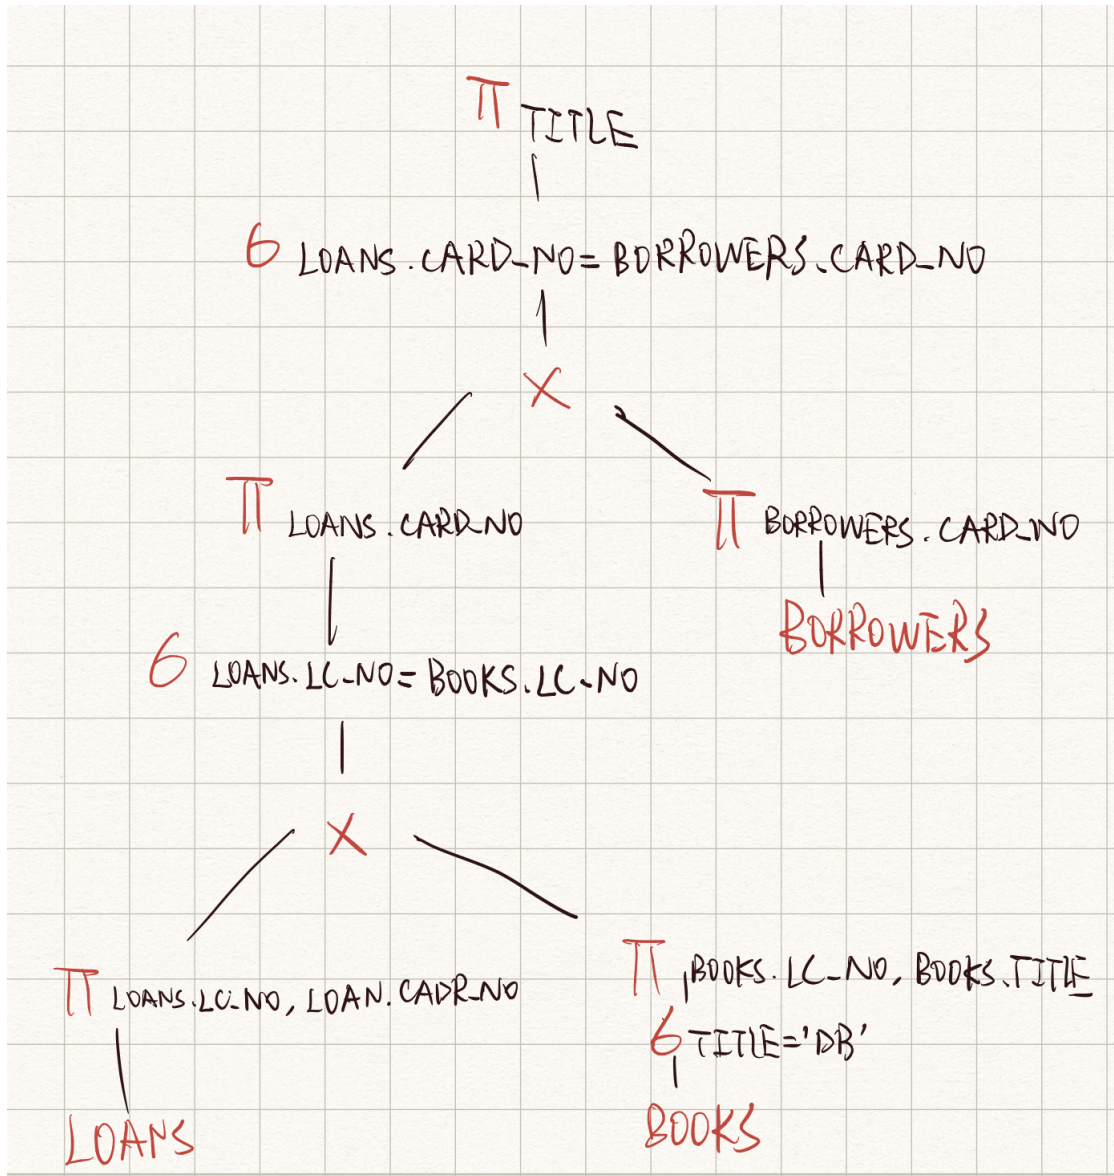 π TITLE
6 LOANS.CARD_NO=BORROWERS.CARD_NO
X
π LOANS.CARD_NO
π BORROWERS.CARD_NO
BORROWERS
6 LOANS.LC-NO=BOOKS.LC-NO
X
π LOANS.LC-NO, LOAN.CADR_NO
π BOOKS.LC-NO, BOOKS.TITLE
6 TITLE='DB'
LOANS
BOOKS